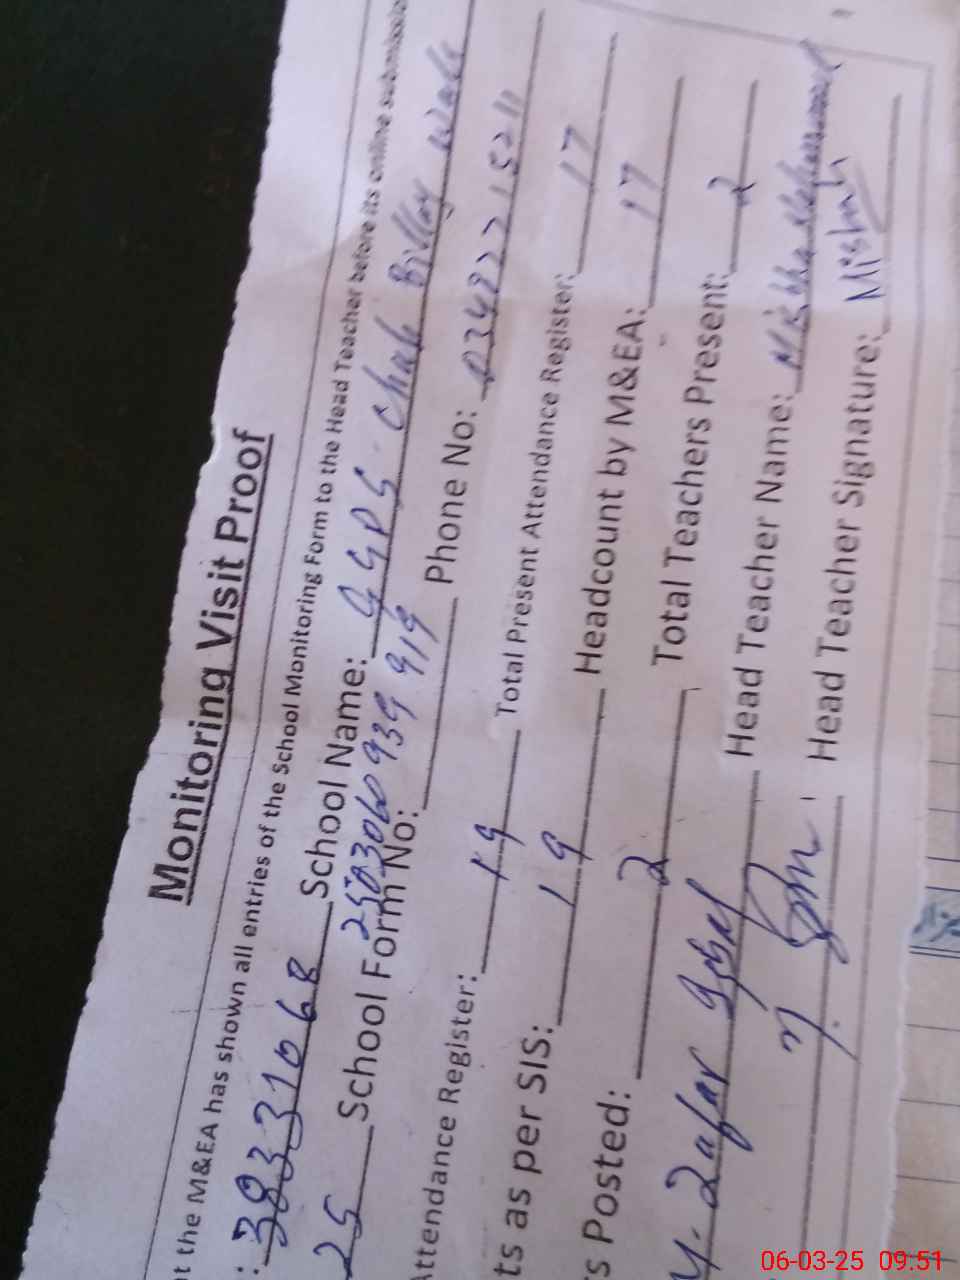 Monitoring Visit Proof
t the M&EA has shown all entries of the School Monitoring Form to the Head Teacher before its online submissio
: 38331068 School Name: GGPS Chah Billay Wala
25 School Form No: 2503060939919 Phone No:
Attendance Register: 19 Total Present Attendance Register: 17
ts as per SIS: 19 Headcount by M&EA: 17
s Posted: 2 Total Teachers Present: 2
Zafar Iqbal Head Teacher Name:
Head Teacher Signature: Misbah
06-03-25 09.51